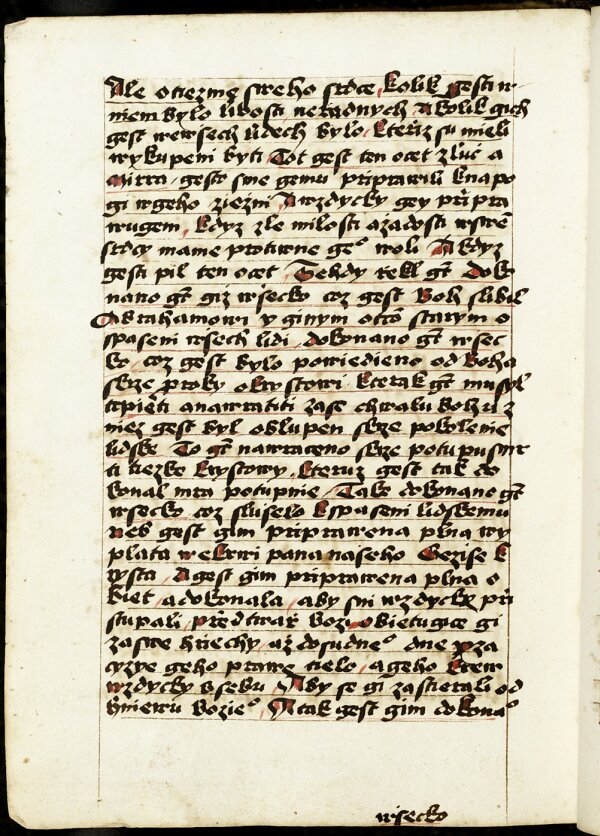 Ale o tiezme sweho srdce kolik gesti w
niem bylo libosti neradnych A kolik gich
gest wewsech lidech bylo kteriz su mieli
wykupeni byti Tot gest ten ocet zluc a
mirra gesto sme gemu priprawili knapo
gi wgeho ziezni A wzdycky gey pripra
wugem kdyz zle milosti a zadosti wswe
srdcy mame protiwne geo woli A kdyz
gesti pil ten ocet Tehdy rekl gt doko
nano gt giz wsecko coz gest Boh slibil
Abrahamowi y ginym otcom starym o
spaseni wsech lidi dokonano gt wsec
ko coz gest bylo powiedieno od boha
skrze proky o krystowi kterak gt musyl
trpieti a nawratiti zase chwalu bohu z
niez gest byl oblupen skrze pokolenie
lidske To gt nawraceno skrze potupu smr
ti tiezke krystowy kteruz gest tak do
konal mra potupnie Take dokonano gt
wsecko coz sluselo kspaseni lidskemu
neb gest gim priprawena plna wy
plata wekrwi pana naseho Gezise k
rysta A gest gim priprawena plna o
biet a dokonala aby sni wzdycky pri
stupali pred twar bozi obietugice gi
zaswe hriechy az do sudneo dne prza
cyzye geho prawe tielo a geho krew
wzdycky v sebu Aby se gi zastierali od
hniewu bozieo A tak gest gim dokonao
wsecko